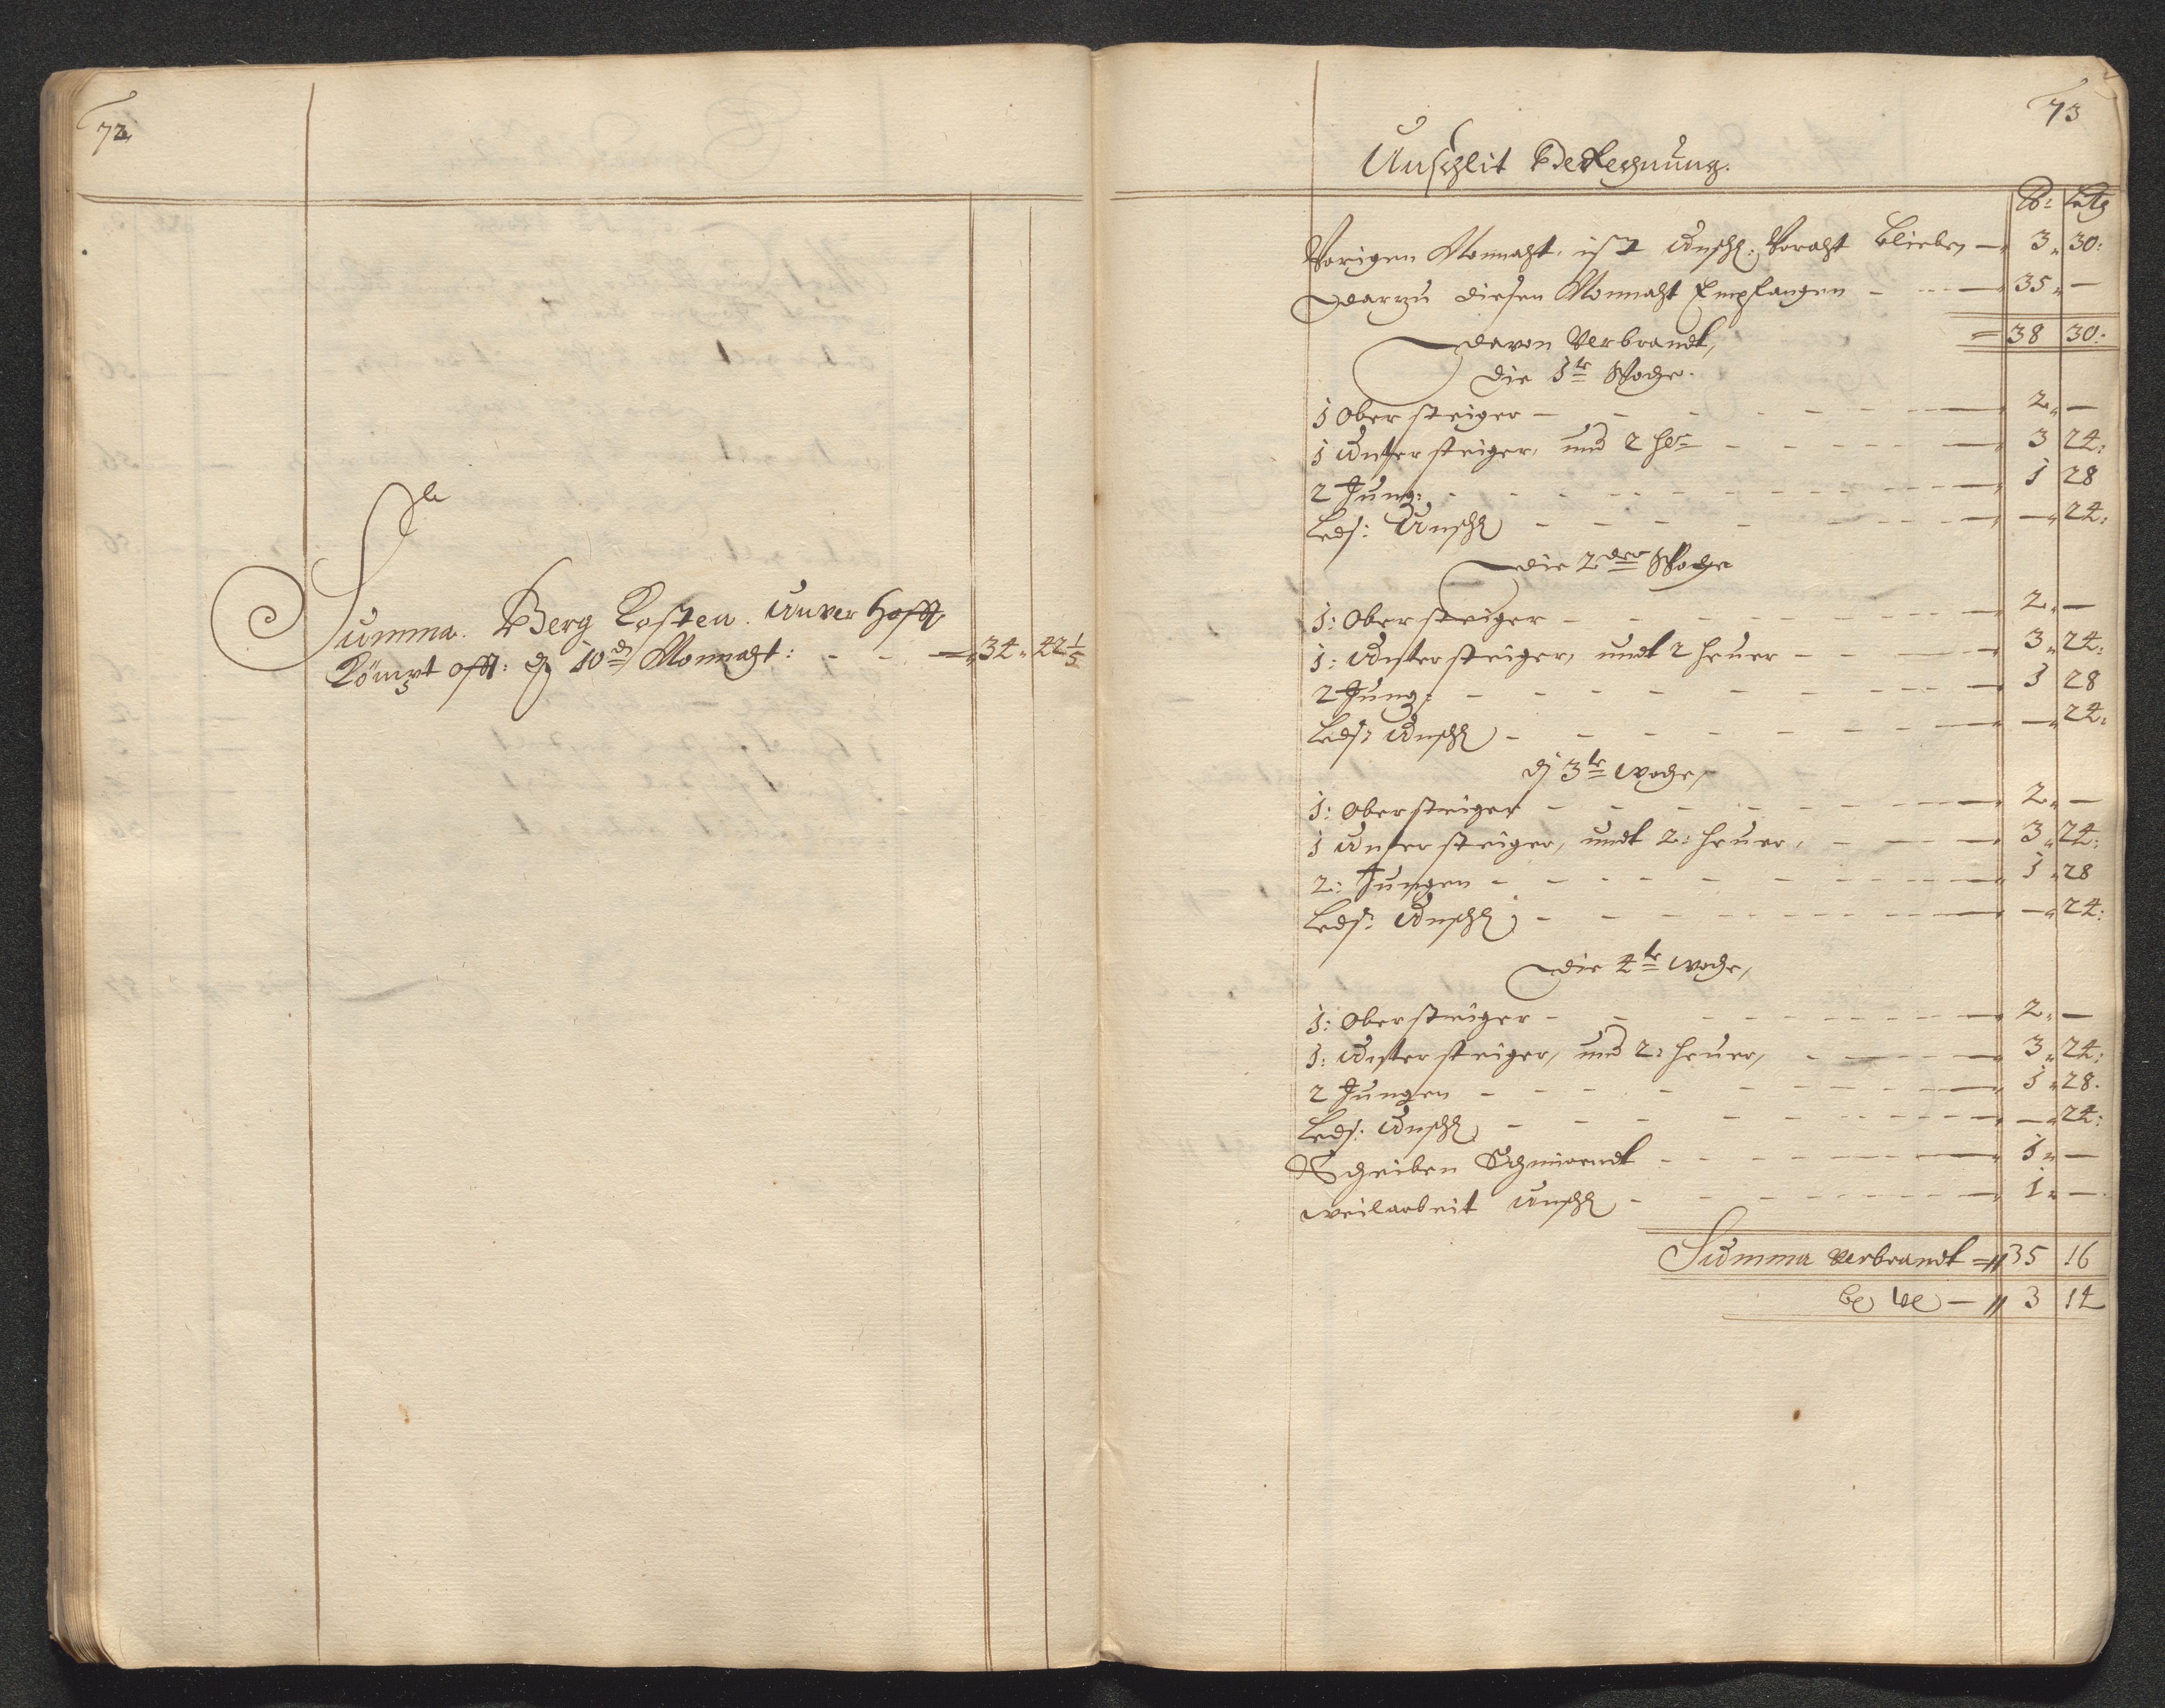 72
Sa
Summa. Berg Costen. Unverhofft
Kömpt offt: dß 10dß Monnaht: - - - 34 " 42 1/5
73
Unschlit Berechnung.
Lb: Loth
Vorigen Monnaht, ist Unschl: Voraht blieben - 3 " 30:
Darzu diesen Monnaht Empfangen - - - 35 " -
= 38 30:
Davon Verbrandt,
Die 1te Woche.
1 Obersteiger - - - 2 " -
1 Untersteiger, und 2 Hr - - - 3 24:
2 Jung: - - - 1 28
Led: Unschl - - - - " 24:
Die 2der Woche
1: Obersteiger - - - 2 " -
1: Untersteiger, undt 2 Heuer - - - 3 " 24:
2 Jung: - - - 1 28
Led: Unschl - - - - " 24:
d 3te Woche,
1: Obersteiger - - - 2 " -
1 Untersteiger, undt 2: Heuer, - - - 3 " 24:
2: Jungen - - - 1 " 28
Led: Unschl: - - - - " 24:
Die 4te Woche,
1: Obersteiger - - - 2 " -
1: Untersteiger, und 2: Heuer, - - - 3 " 24:
2 Jungen - - - 1 " 28.
Led: Unschl - - - - " 24:
Scheiben Schmierendt - - - 1 " -
Weilarbeit Unschl - - - 1 " -
Summa Verbrandt = " 35 16
- " 3 14